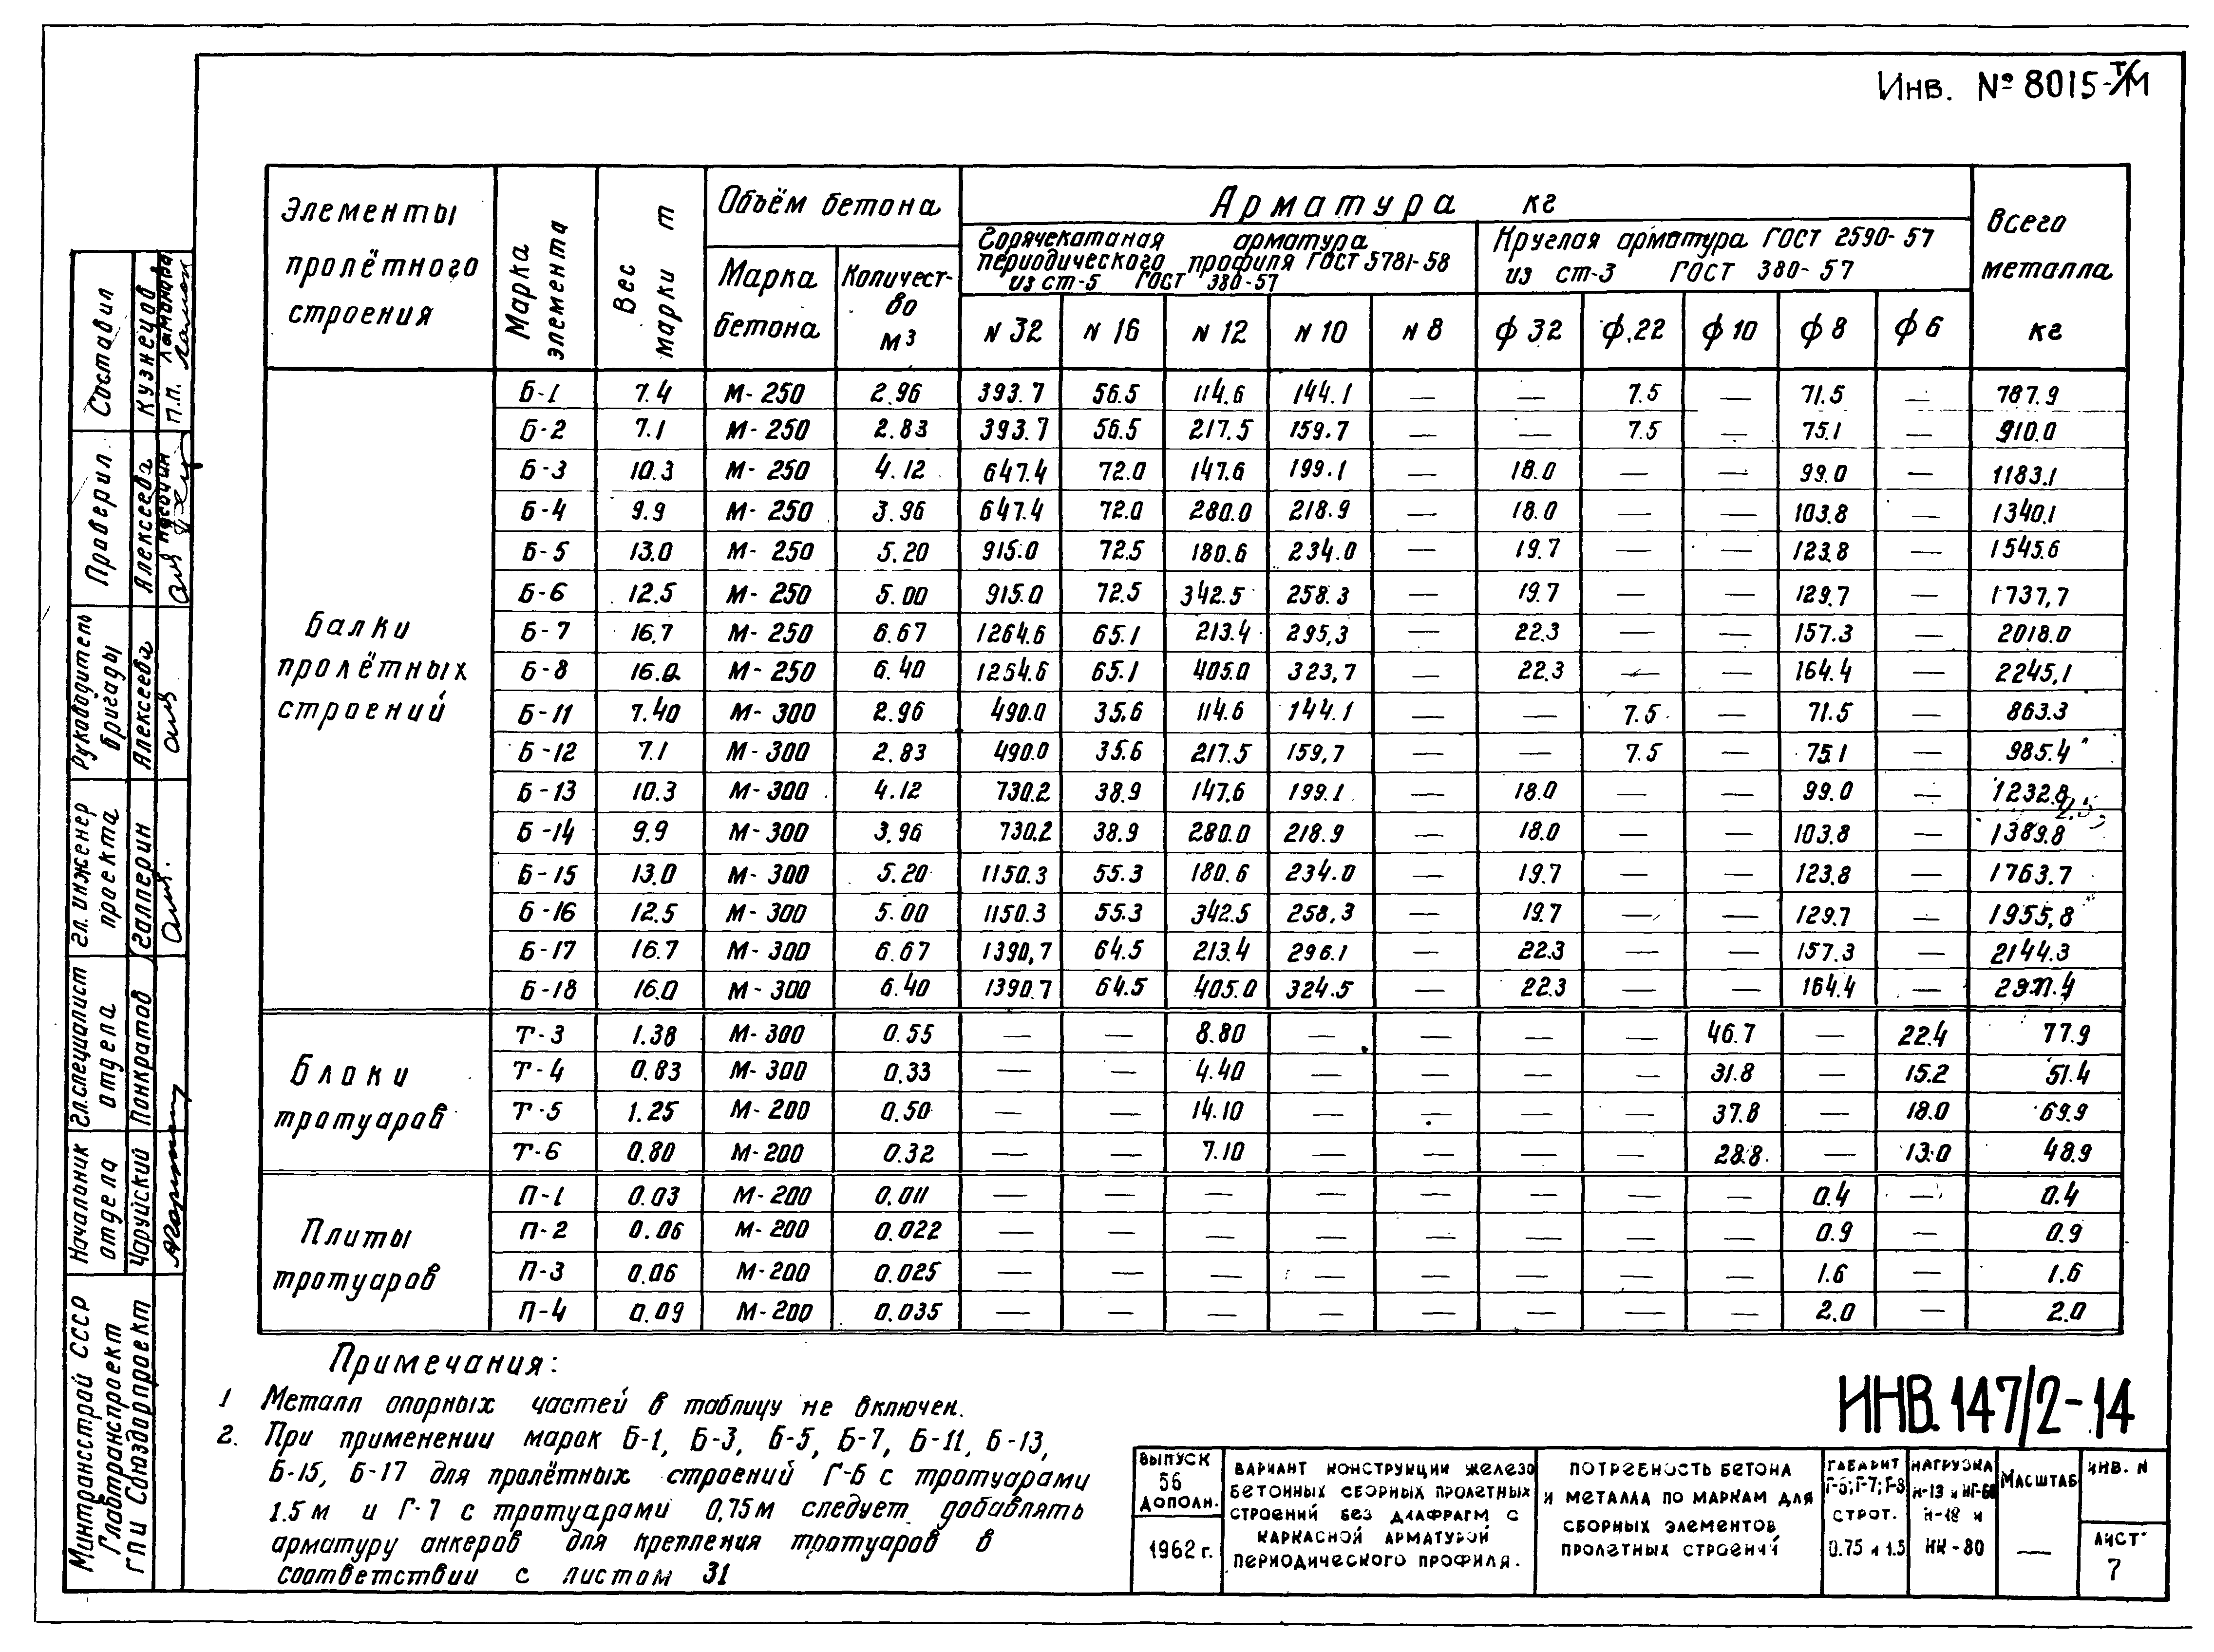 Инв. № 8015-т/м
Элементы пролётного строения | Марка элемента | Вес марки т | Объём бетона | Арматура кг | Всего металла кг
Марка бетона | Количество м³ | Горячекатаная арматура периодического профиля ГОСТ 5781-58 из ст-5 ГОСТ 380-57 | Круглая арматура ГОСТ 2590-57 из ст-3 ГОСТ 380-57
N 32 | N 16 | N 12 | N 10 | N 8 | ф 32 | ф.22 | ф 10 | ф 8 | ф 6
Балки пролётных строений
Б-1 7.4 М-250 2.96 393.7 56.5 114.6 144.1 — — 7.5 — 71.5 — 787.9
Б-2 7.1 М-250 2.83 393.7 56.5 217.5 159.7 — — 7.5 — 75.1 — 910.0
Б-3 10.3 М-250 4.12 647.4 72.0 147.6 199.1 — 18.0 — — 99.0 — 1183.1
Б-4 9.9 М-250 3.96 647.4 72.0 280.0 218.9 — 18.0 — — 103.8 — 1340.1
Б-5 13.0 М-250 5.20 915.0 72.5 180.6 234.0 — 19.7 — — 123.8 — 1545.6
Б-6 12.5 М-250 5.00 915.0 72.5 342.5 258.3 — 19.7 — — 129.7 — 1737,7
Б-7 16.7 М-250 6.67 1264.6 65.1 213.4 295,3 — 22.3 — — 157.3 — 2018.0
Б-8 16.0 М-250 6.40 1264.6 65.1 405.0 323,7 — 22.3 — — 164.4 — 2245,1
Б-11 7.40 М-300 2.96 490.0 35.6 114.6 144.1 — — 7.5 — 71.5 — 863.3
Б-12 7.1 М-300 2.83 490.0 35.6 217.5 159,7 — — 7.5 — 75.1 — 985.4
Б-13 10.3 М-300 4.12 730.2 38.9 147.6 199.1 — 18.0 — — 99.0 — 1232.8
Б-14 9.9 М-300 3.96 730.2 38.9 280.0 218.9 — 18.0 — — 103.8 — 1389.8
Б-15 13.0 М-300 5.20 1150.3 55.3 180.6 234.0 — 19.7 — — 123.8 — 1763.7
Б-16 12.5 М-300 5.00 1150.3 55.3 342.5 258,3 — 19.7 — — 129.7 — 1955,8
Б-17 16.7 М-300 6.67 1390,7 64.5 213.4 296.1 — 22.3 — — 157.3 — 2144.3
Б-18 16.0 М-300 6.40 1390.7 64.5 405.0 324.5 — 22.3 — — 164.4 —
Блоки тротуаров
Т-3 1.38 М-300 0.55 — — 8.80 — — — — 46.7 — 22.4 77.9
Т-4 0.83 М-300 0.33 — — 4.40 — — — — 31.8 — 15.2 51.4
Т-5 1.25 М-200 0.50 — — 14.10 — — — — 37.8 — 18.0 69.9
Т-6 0.80 М-200 0.32 — — 7.10 — — — — 28.8 — 13.0 48.9
Плиты тротуаров
П-1 0.03 М-200 0.011 — — — — — — — — 0.4 — 0.4
П-2 0.06 М-200 0.022 — — — — — — — — 0.9 — 0.9
П-3 0.06 М-200 0.025 — — — — — — — — 1.6 — 1.6
П-4 0.09 М-200 0.035 — — — — — — — — 2.0 — 2.0
Примечания:
1 Металл опорных частей в таблицу не включен.
2. При применении марок Б-1, Б-3, Б-5, Б-7, Б-11, Б-13,
Б-15, Б-17 для пролётных строений Г-6 с тротуарами
1.5 м и Г-7 с тротуарами 0,75м следует добавлять
арматуру анкеров для крепления тротуаров в
соответствии с листом 31
ИНВ. 147/2-14
Выпуск 56 дополн.
1962 г.
Вариант конструкции железо
бетонных сборных пролетных
строений без диафрагм с
каркасной арматурой
периодического профиля.
Потребность бетона
и металла по маркам для
сборных элементов
пролетных строений
Габарит
Г-6; Г-7; Г-8
с трот.
0.75 и 1.5
Нагрузка
Н-13 и НГ-60
Н-18 и
НК-80
Масштаб
—
Инв. N
Лист
7
Составил Кузнецов П.П. Ламонова
Проверил Алексеева
Руководитель бригады Алексеева
Гл. инженер проекта Галперин
Гл. специалист отдела Панкратов
Начальник отдела Чаруйский
Минтрансстрой СССР
Главтранспроект
ГПИ Союздорпроект